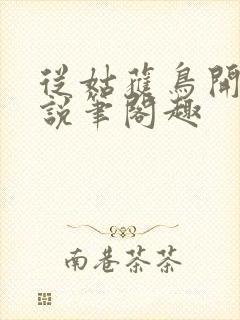 從姑獲鳥開
說筆閣趣
南巷茶茶